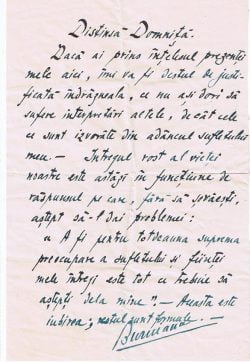 Distinsă Domniță.
Dacă ai prins înțelesul prezenței
mele aici, îmi va fi destul de jus-
ificată îndrăgneala, ce nu ași dori să
sufere interpretări altele, decât cele
ce sunt izvorâte din adâncul sufletului
meu. — Întregul rost al vieței
noastre este astăzi în funcțiune de
răspunsul pe care, fără să șovăești,
aștept să-l dai problemei:
" A fi pentru totdeauna suprema
preocupare a sufletului și ființei
mele întregi este tot ce trebuie să
aștepți dela mine". — Aceasta este
iubirea; restul sunt formule.